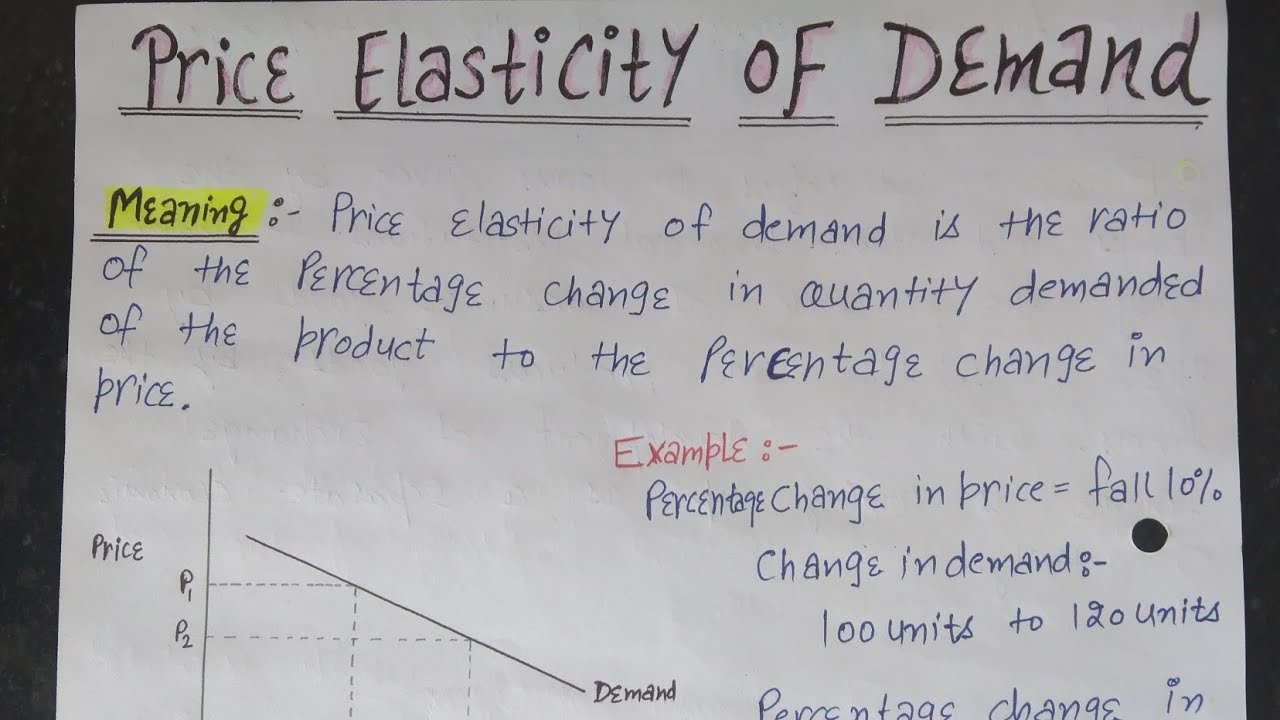 Price Elasticity of Demand
Meaning :- Price elasticity of demand is the ratio
of the Percentage change in quantity demanded
of the product to the Percentage change in
price.
Example :-
Percentage Change in price = fall 10%
Change in demand :-
100 units to 120 units
Percentage change in
Price
P1
P2
Demand